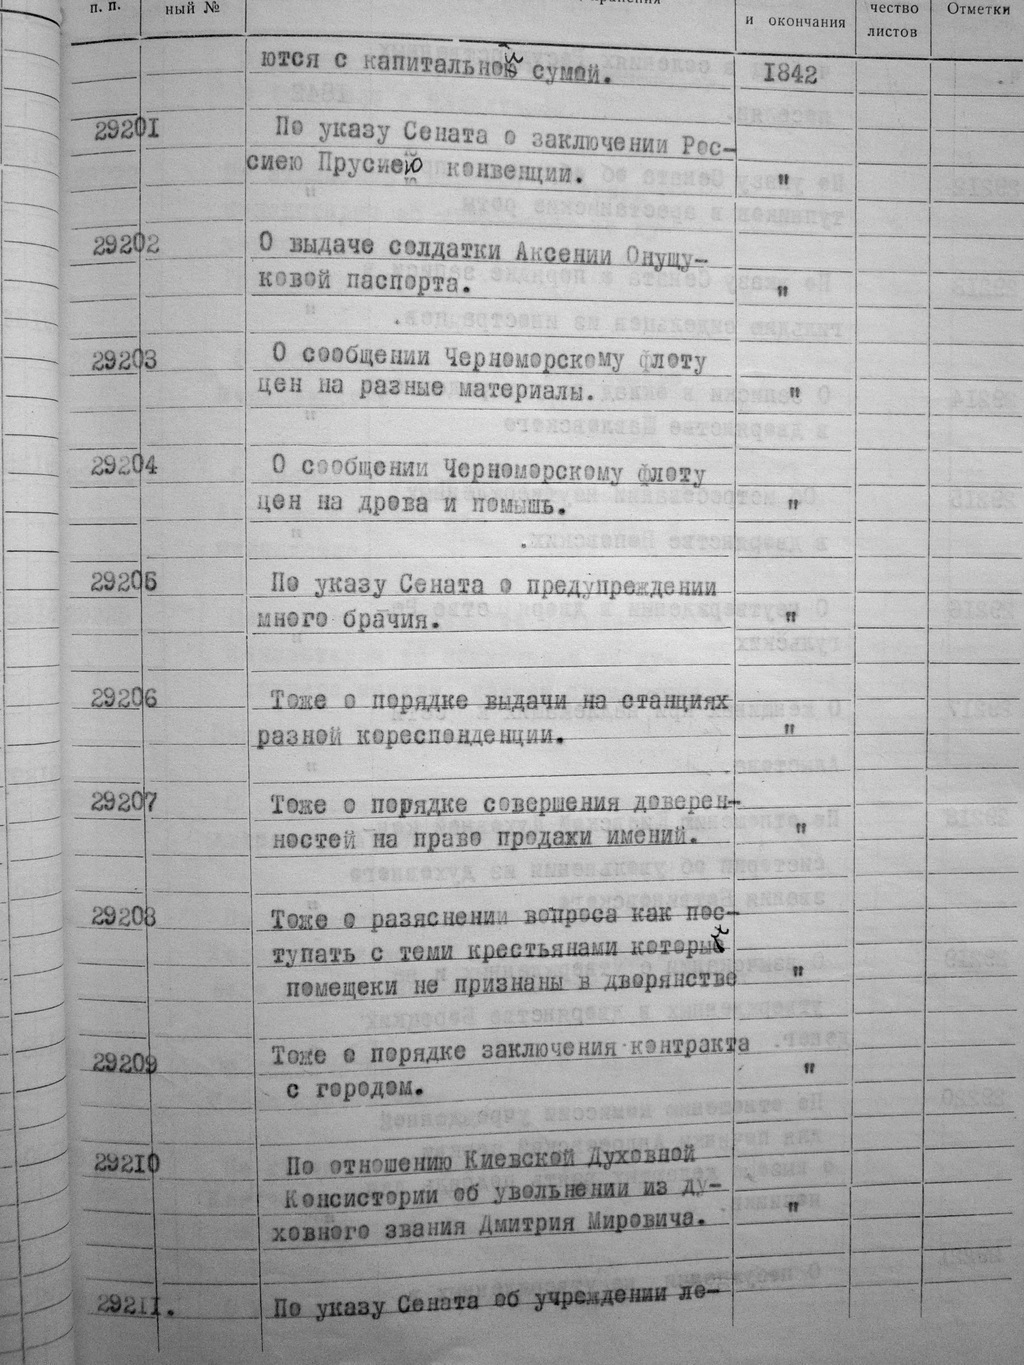 п. п.
ный №
и окончания
чество
листов
Отметки
ются с капитальной сумой. 1842
29201 По указу Сената о заключении Рос-
сиею Прусиею конвенции. "
29202 О выдаче солдатки Аксении Онущу-
ковой паспорта. "
29203 О сообщении Черноморскому флоту
цен на разные материалы. "
29204 О сообщении Черноморскому флоту
цен на дрова и помышь. "
29205 По указу Сената о предупреждении
много брачия. "
29206 Тоже о порядке выдачи на станциях
разной кореспонденции. "
29207 Тоже о порядке совершения доверен-
ностей на право продажи имений. "
29208 Тоже о разяснении вопроса как пос-
тупать с теми крестьянами которых
помещеки не признаны в дворянстве "
29209 Тоже о порядке заключения контракта
с городом. "
29210 По отношению Киевской Духовной
Консистории об увольнении из ду-
ховного звания Дмитрия Мировича. "
29211. По указу Сената об учреждении ле-